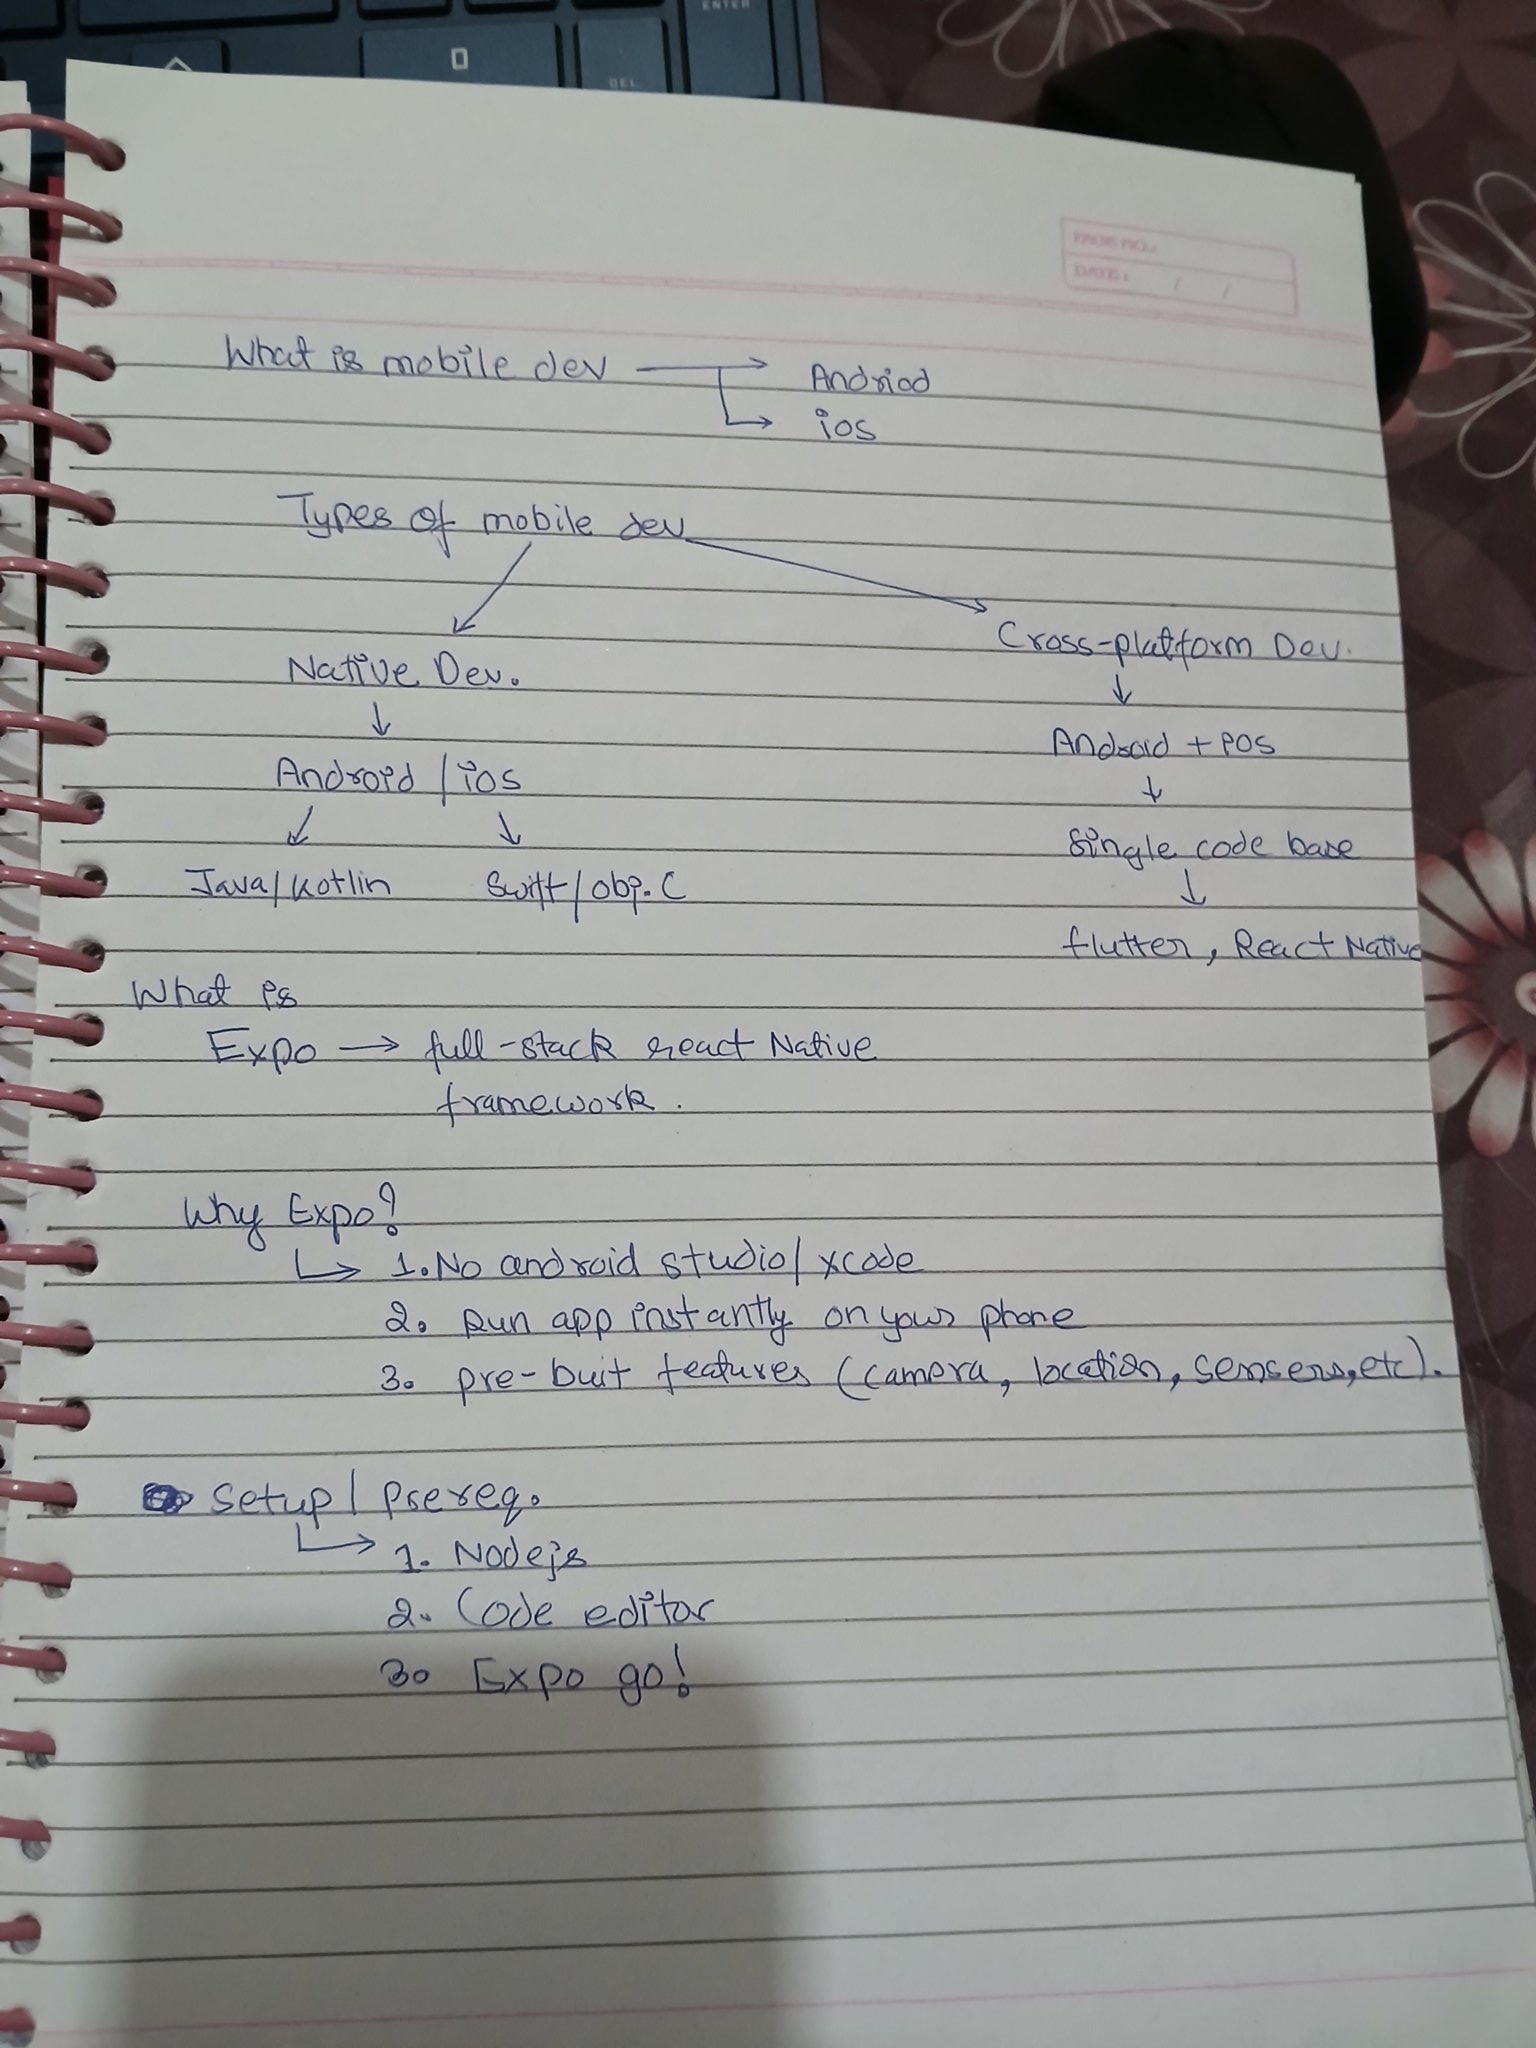 ENTER
0
DEL
PAGE NO.:
DATE: / /
What is mobile dev → Andriod
→ ios
Types of mobile dev
Native Dev.
Cross-platform Dev.
↓
↓
Android / ios
Android + ios
↓
↓
↓
Java/Kotlin
Swift/obj. C
Single code base
↓
flutter, React Native
What is
Expo → full-stack react Native
framework.
Why Expo?
→ 1. No android studio/xcode
2. Run app instantly on your phone
3. pre-buit features (camera, location, sensers, etc).
Setup / Prereq.
→ 1. Nodejs
2. Code editor
3. Expo go!